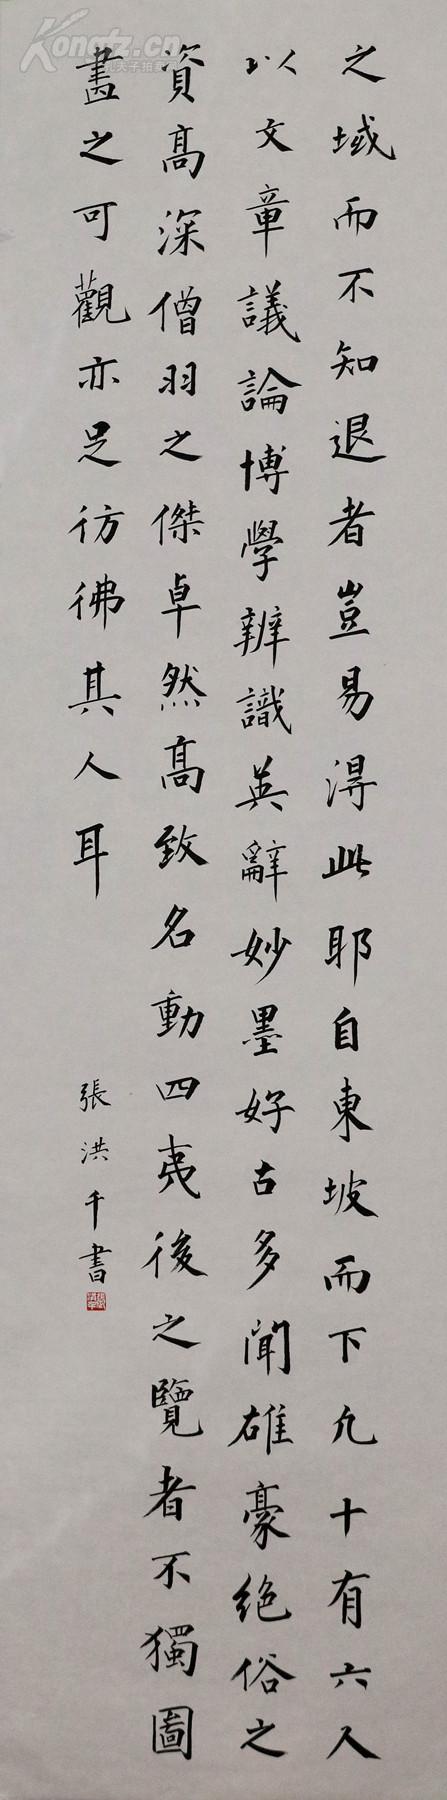 之域而不知退者豈易得此耶自東坡而下凡十有六人
以文章議論博學辨識英辭妙墨好古多聞雄豪絶俗之
資高深僧羽之傑卓然高致名動四夷後之覽者不獨圖
畫之可觀亦足彷彿其人耳
張洪千書
Kongfz.cn